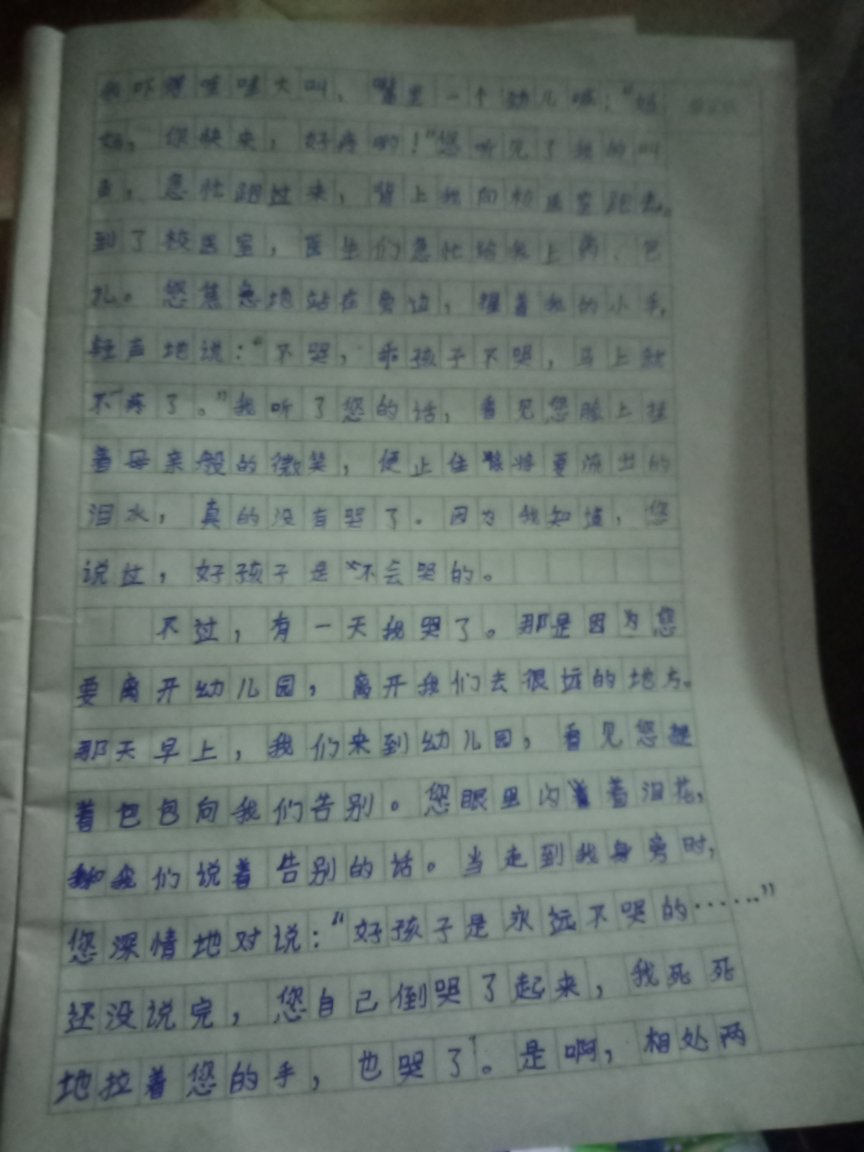 我吓得哇哇大叫，嘴里一个劲儿喊：“妈
妈，你快来，好疼哟！”您听见了我的叫
声，急忙跑过来，背上我向校医室跑去。
到了校医室，医生们急忙给我上药、包
扎。您焦急地站在旁边，握着我的小手，
轻声地说：“不哭，乖孩子不哭，马上就
不疼了。”我听了您的话，看见您脸上挂
着母亲般的微笑，便止住将要流出的
泪水，真的没有哭了。因为我知道，您
说过，好孩子是不会哭的。
不过，有一天我哭了。那是因为您
要离开幼儿园，离开我们去很远的地方。
那天早上，我们来到幼儿园，看见您提
着包包向我们告别。您眼里闪着泪花，
和我们说着告别的话。当走到我身旁时，
您深情地对说：“好孩子是永远不哭的……”
还没说完，您自己倒哭了起来，我死死
地拉着您的手，也哭了。是啊，相处两